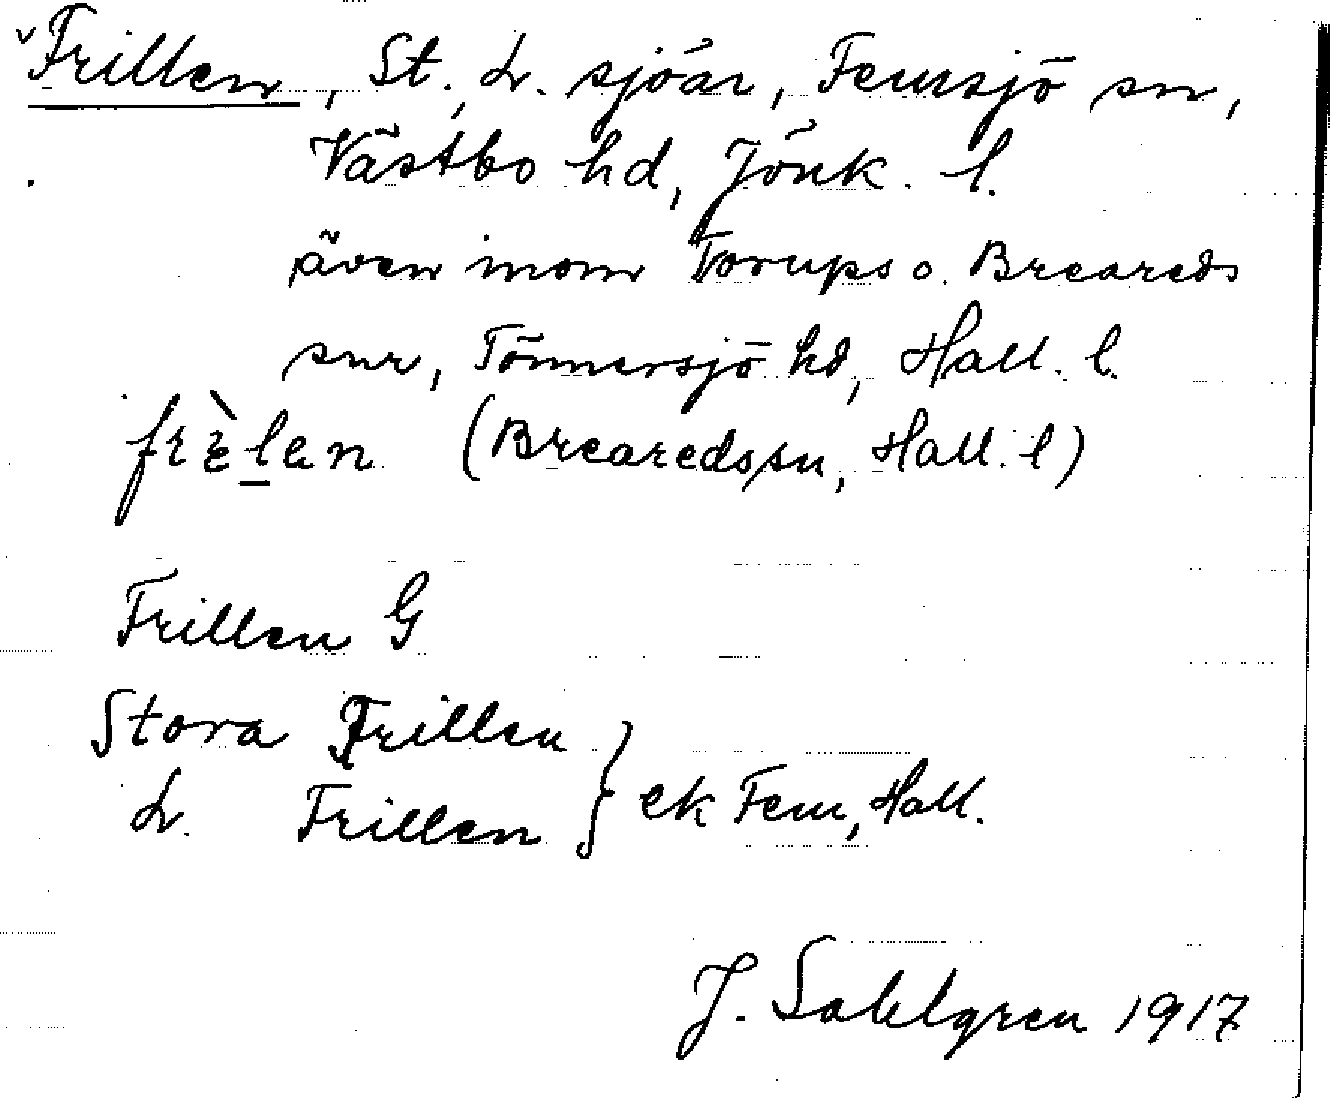 Frillen, St., L. sjöar, Femsjö sn,
Västbo hd, Jönk. l.
även inom Torups o. Breareds
snr, Tönnersjö hd, Hall. l.
frὲlen (Brearedssn, Hall. l)
Frillen G
Stora Frillen
L. Frillen } ek Fem, Hall.
J. Sahlgren 1917